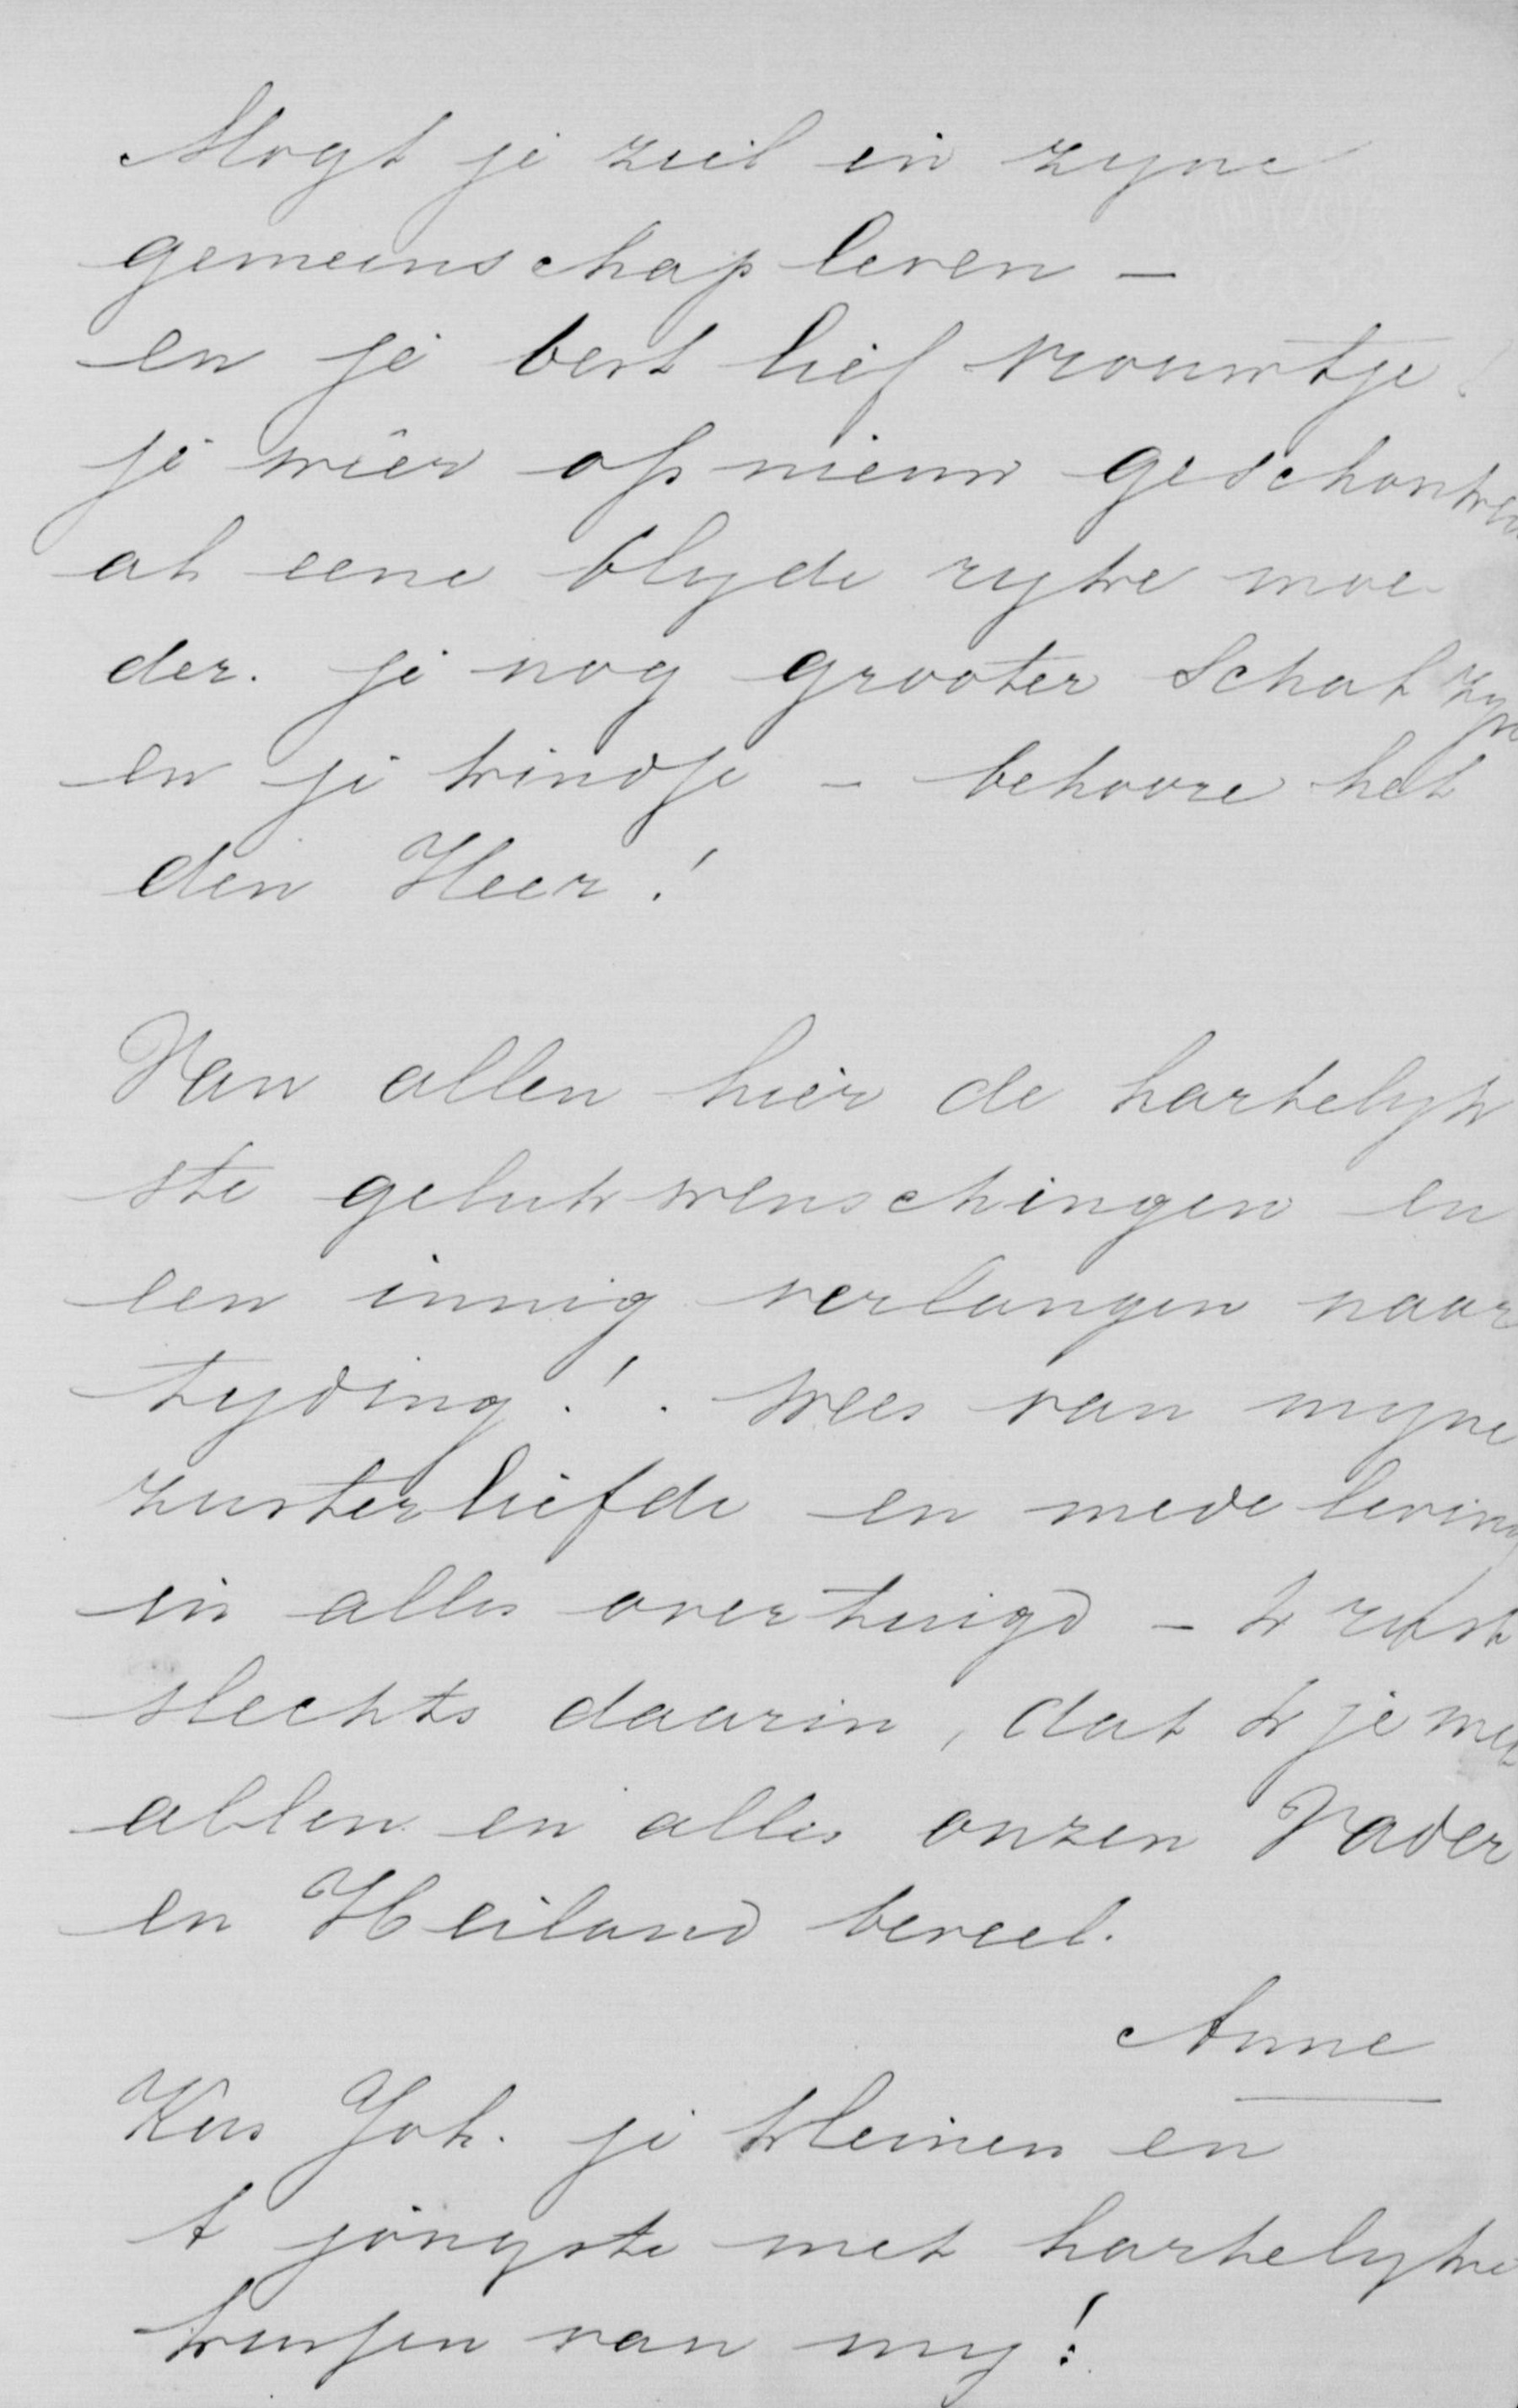 Mogt je ziel in zyne
gemeenschap leven –
en je best lief vrouwtje
je wêer op nieuw geschonken
als eene blyde ryke moe
der. je nog grooter schat zyn
en je kindje – behoore het
den Heer!
Van allen hier de hartelyk
ste gelukwenschingen en
een innig verlangen naar
tyding!. Wees van myne
zusterliefde en mede leving
in alles overtuigd – k rust
slechts daarin, dat k je met
allen en alles onzen Vader
en Heiland beveel.
Anne
Kus Joh. je kleinen en
t jongste met hartelyke
kusjen van my!